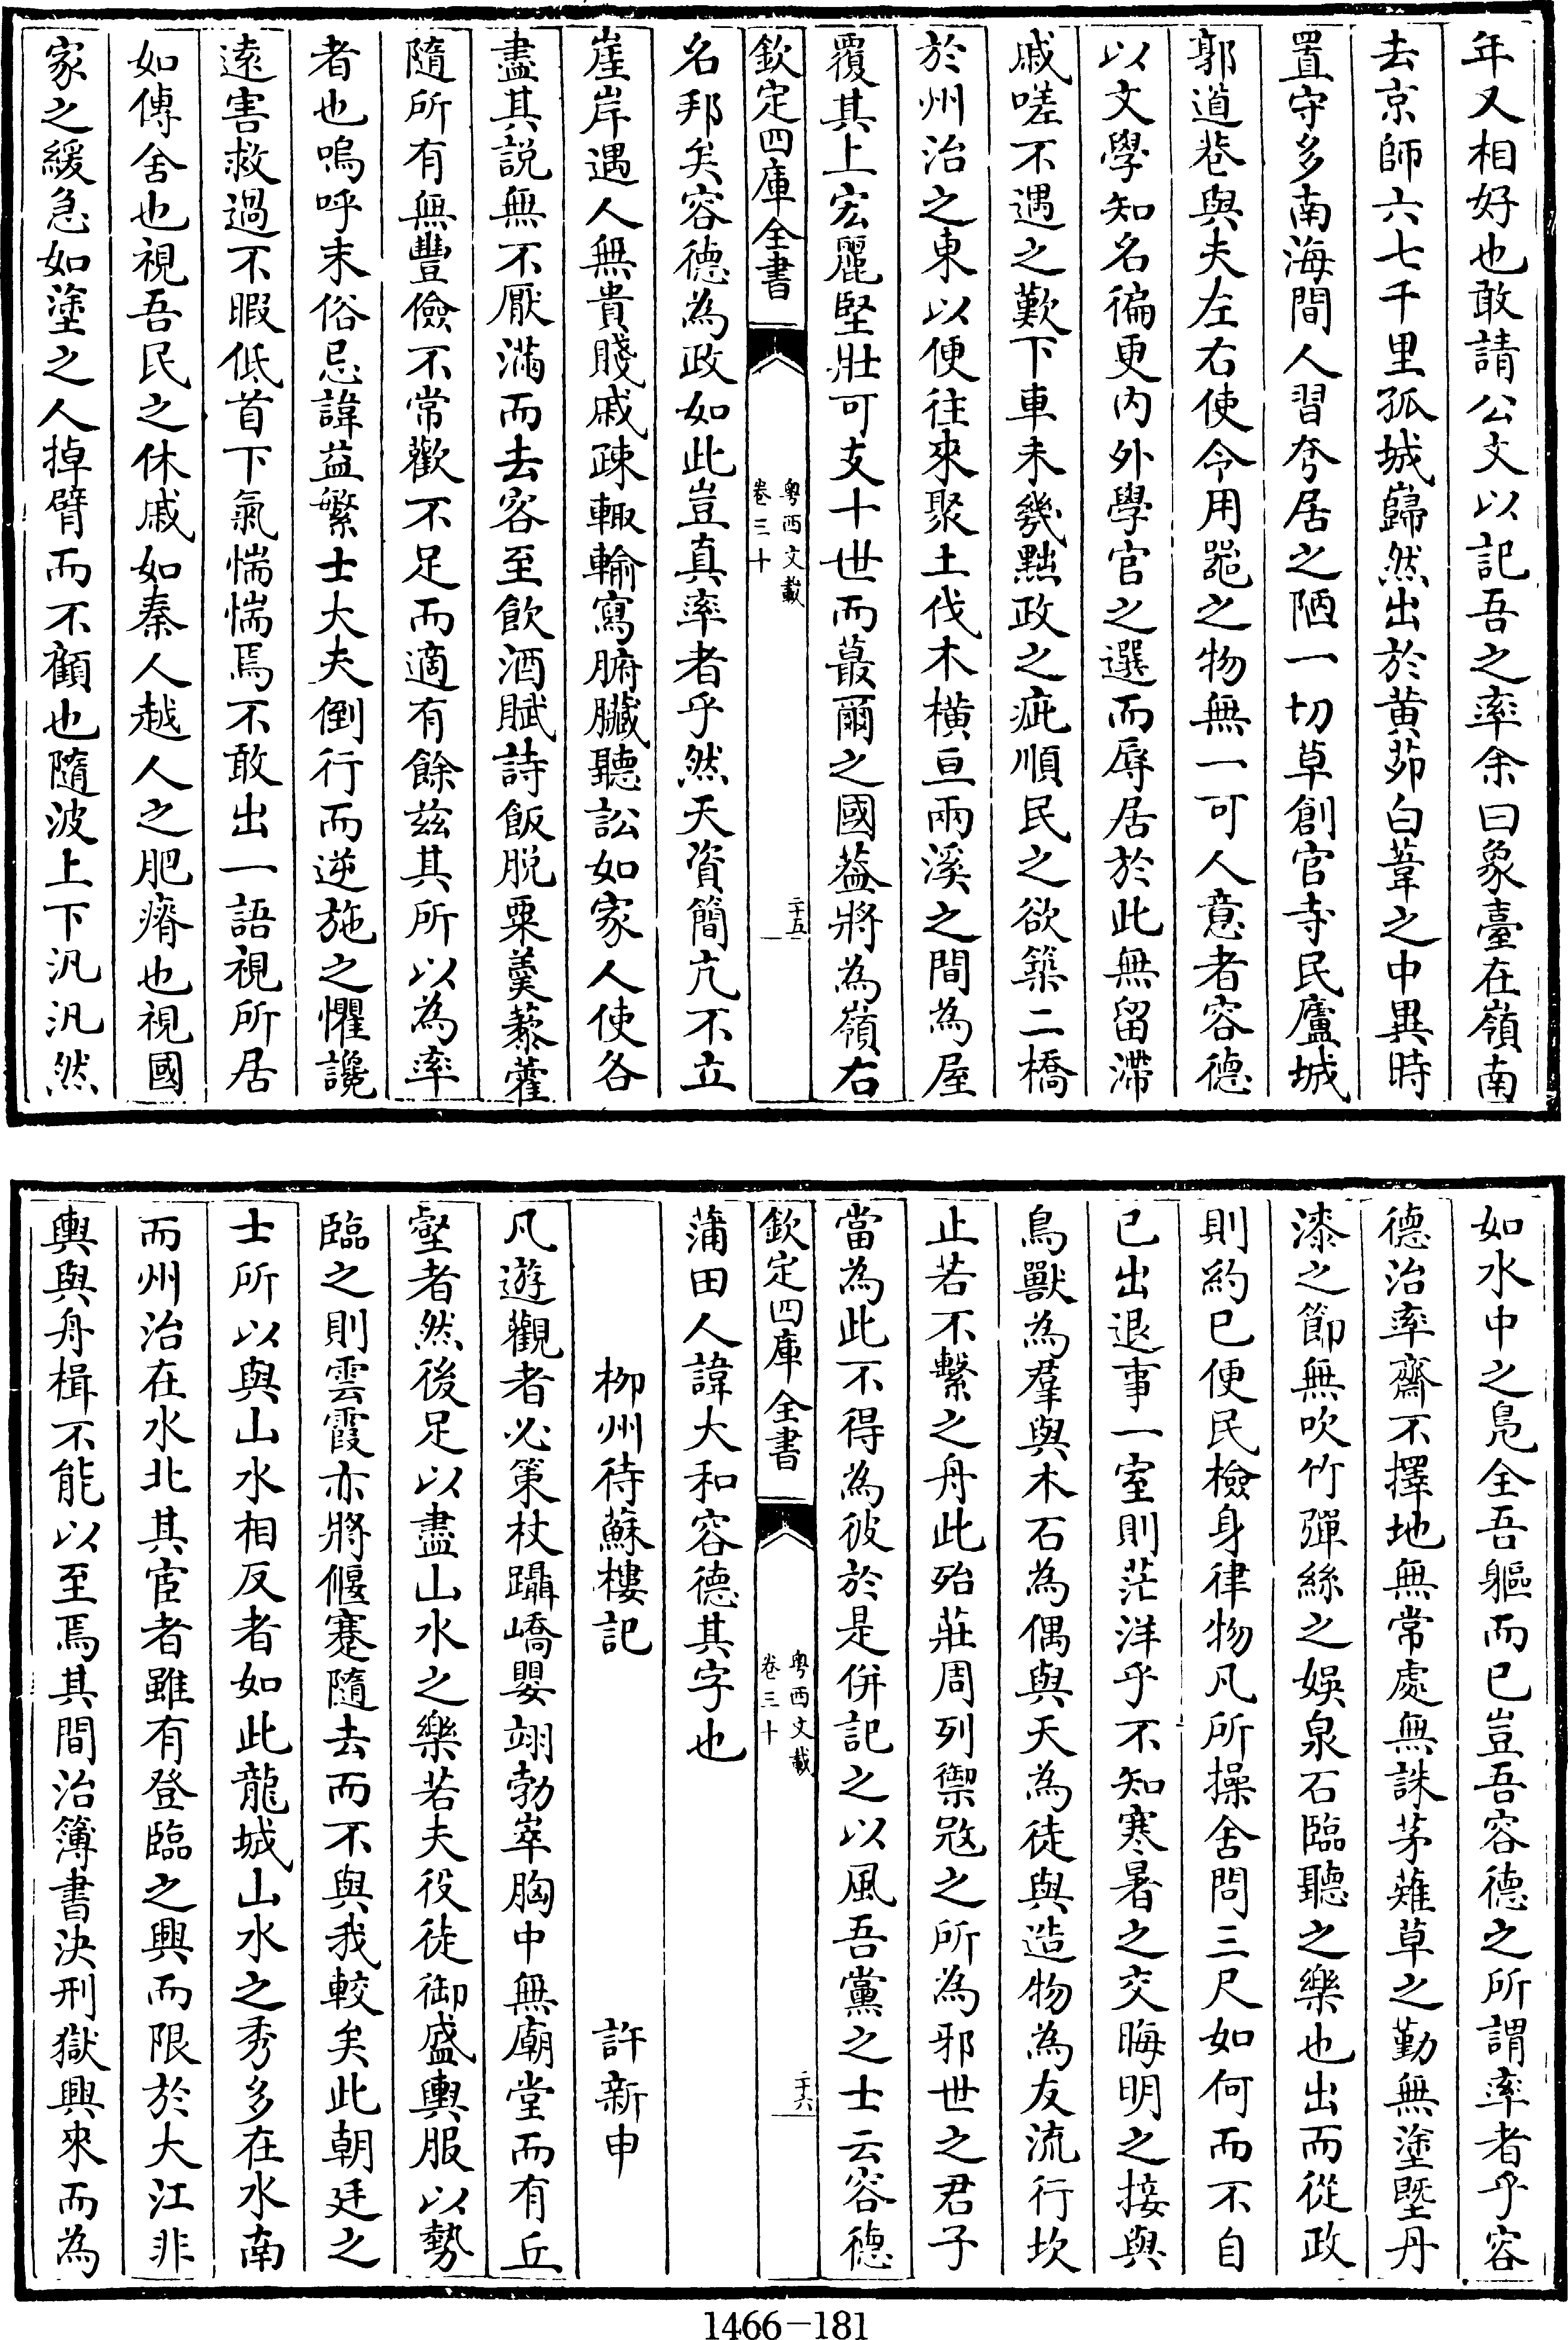 年又相好也敢請公文以記吾之率余曰象臺在嶺南
去京師六七千里孤城巋然出於黄茆白葦之中異時
置守多南海間人習夸居之陋一切草創官寺民廬城
郭道巷與夫左右使令用噐之物無一可人意者容德
以文學知名徧更内外學官之選而辱居於此無留滯
戚嗟不遇之歎下車未幾點政之疵順民之欲築二橋
於州治之東以便往來聚土伐木橫亘兩溪之間為屋
覆其上宏麗堅壯可支十世而蕞爾之國葢將為嶺右
欽定四庫全書
粤西文載
卷三十
二十五
名邦矣容德為政如此豈真率者乎然天資簡亢不立
崖岸遇人無貴賤戚疎輙輸寫腑臟聽訟如家人使各
盡其說無不厭滿而去客至飲酒賦詩飯脱粟羮藜藿
隨所有無豐儉不常歡不足而適有餘兹其所以為率
者也嗚呼末俗忌諱益繁士大夫倒行而逆施之懼讒
逺害救過不暇低首下氣惴惴焉不敢出一語視所居
如傳舍也視吾民之休戚如秦人越人之肥瘠也視國
家之緩急如塗之人掉臂而不顧也隨波上下汎汎然
如水中之鳬全吾軀而已豈吾容德之所謂率者乎容
德治率齋不擇地無常處無誅茅薙草之勤無塗墍丹
漆之節無吹竹彈絲之娛泉石臨聽之樂也出而從政
則約已便民檢身律物凡所操舍問三尺如何而不自
已出退事一室則茫洋乎不知寒暑之交晦明之接與
鳥獸為羣與木石為偶與天為徒與造物為友流行坎
止若不繫之舟此殆莊周列禦宼之所為邪世之君子
當為此不得為彼於是併記之以風吾黨之士云容德
欽定四庫全書
粤西文載
卷三十
二十六
蒲田人諱大和容德其字也
柳州待蘇樓記
許新申
凡遊觀者必策杖躡嶠嬰翊勃崒胸中無廟堂而有丘
壑者然後足以盡山水之樂若夫役徒御盛輿服以勢
臨之則雲霞亦將偃蹇隨去而不與我較矣此朝廷之
士所以與山水相反者如此龍城山水之秀多在水南
而州治在水北其宦者雖有登臨之興而限於大江非
輿與舟楫不能以至焉其間治簿書決刑獄興來而為
1466-181